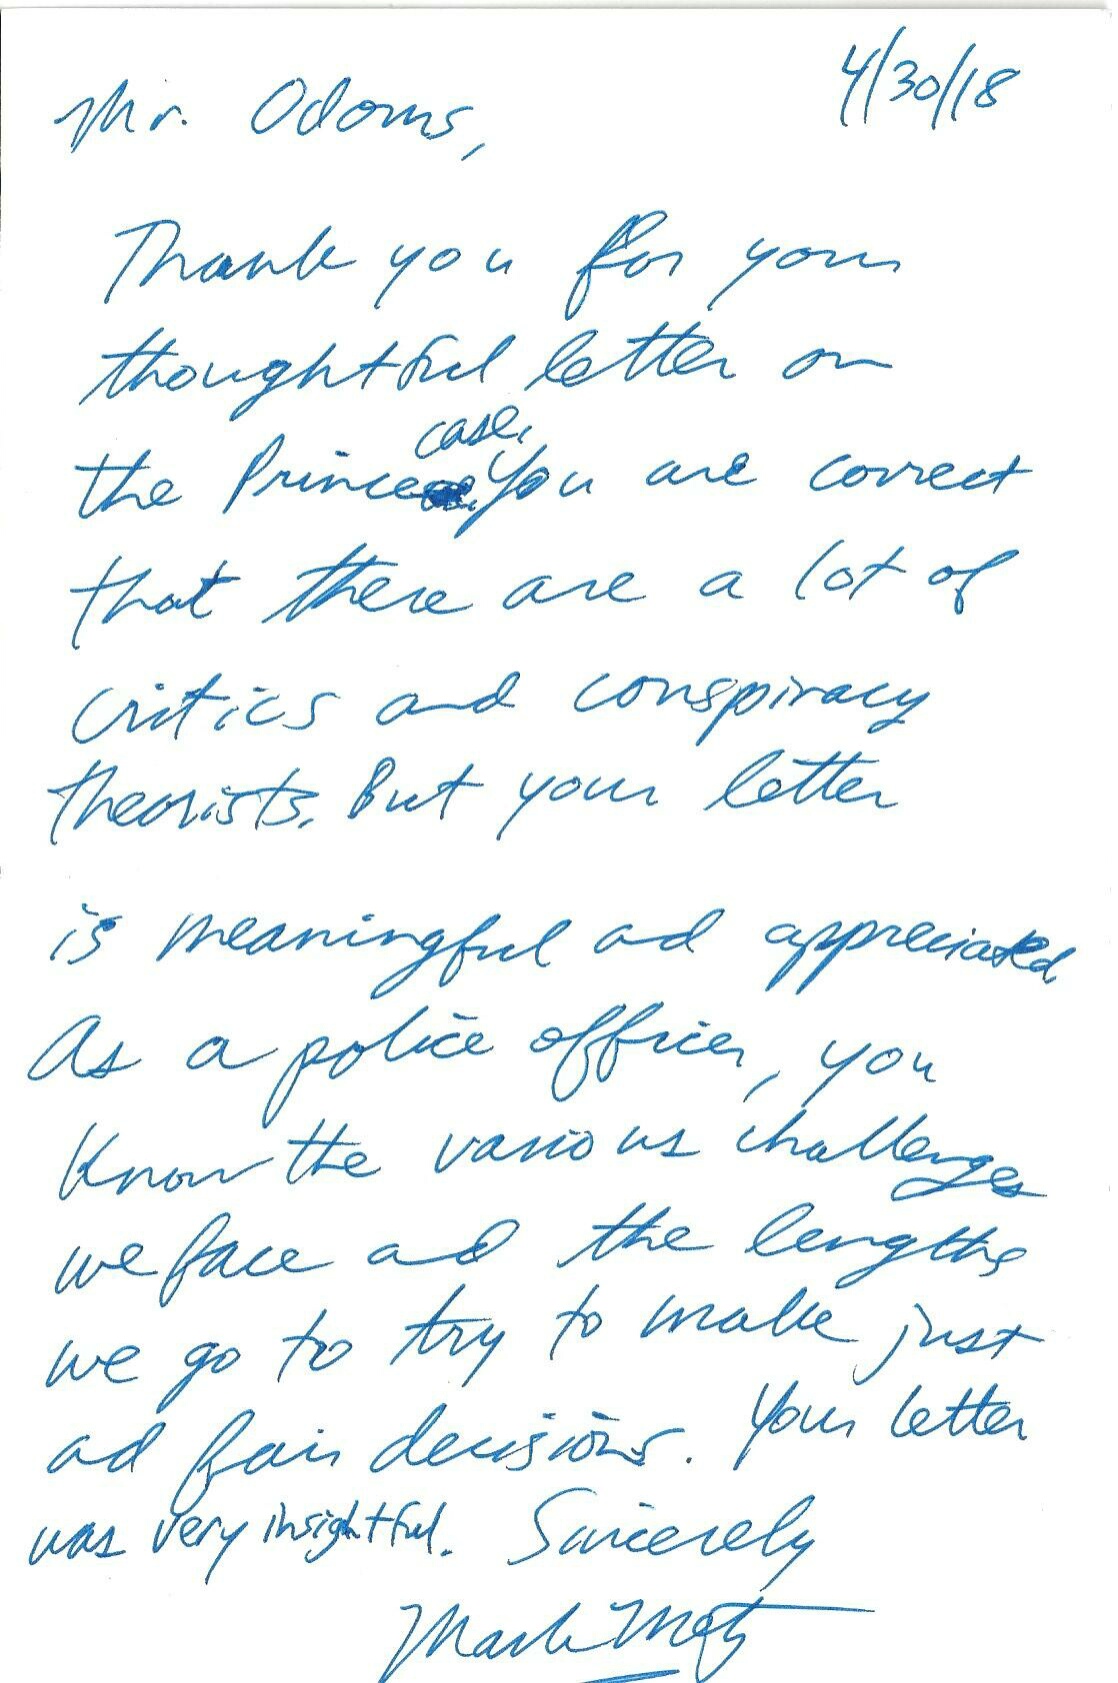 4/30/18
Mr. Odoms,
Thank you for your
thoughtful letter on
the Prince case. You are correct
that there are a lot of
critics and conspiracy
theorists. But your letter
is meaningful ad appreciated
As a police officer, you
know the various challenges
we face ad the lengths
we go to try to make just
ad fair decisions. Your letter
was very insightful. Sincerely
Mark Metz